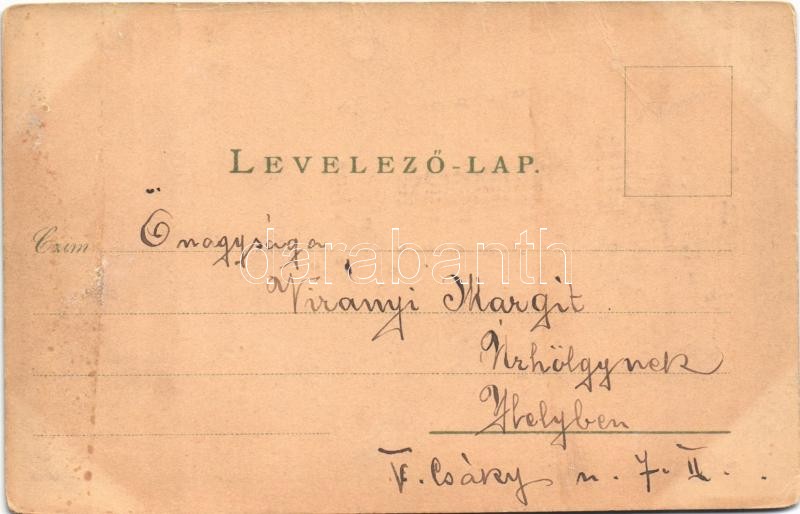 LEVELEZŐ-LAP.
Czim Őnagysága
darabanth
Virányi Margit
Úrhölgynek
Helyben
V. Csáky u. 7. II.